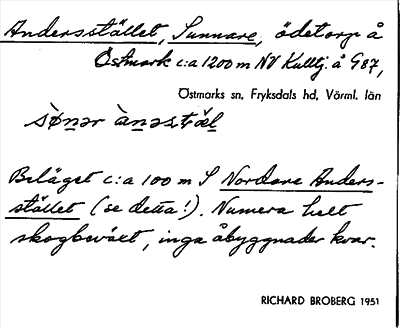 Andersstället, Sunnare, ödetorp å
Östmark c:a 1200 m NV Kulltj. å G87,
Östmarks sn, Fryksdals hd, Värml. län
Beläget c:a 100 m S Nordare Anders-
stället (se detta!). Numera helt
skogbeväxt, inga åbyggnader kvar.
RICHARD BROBERG 1951